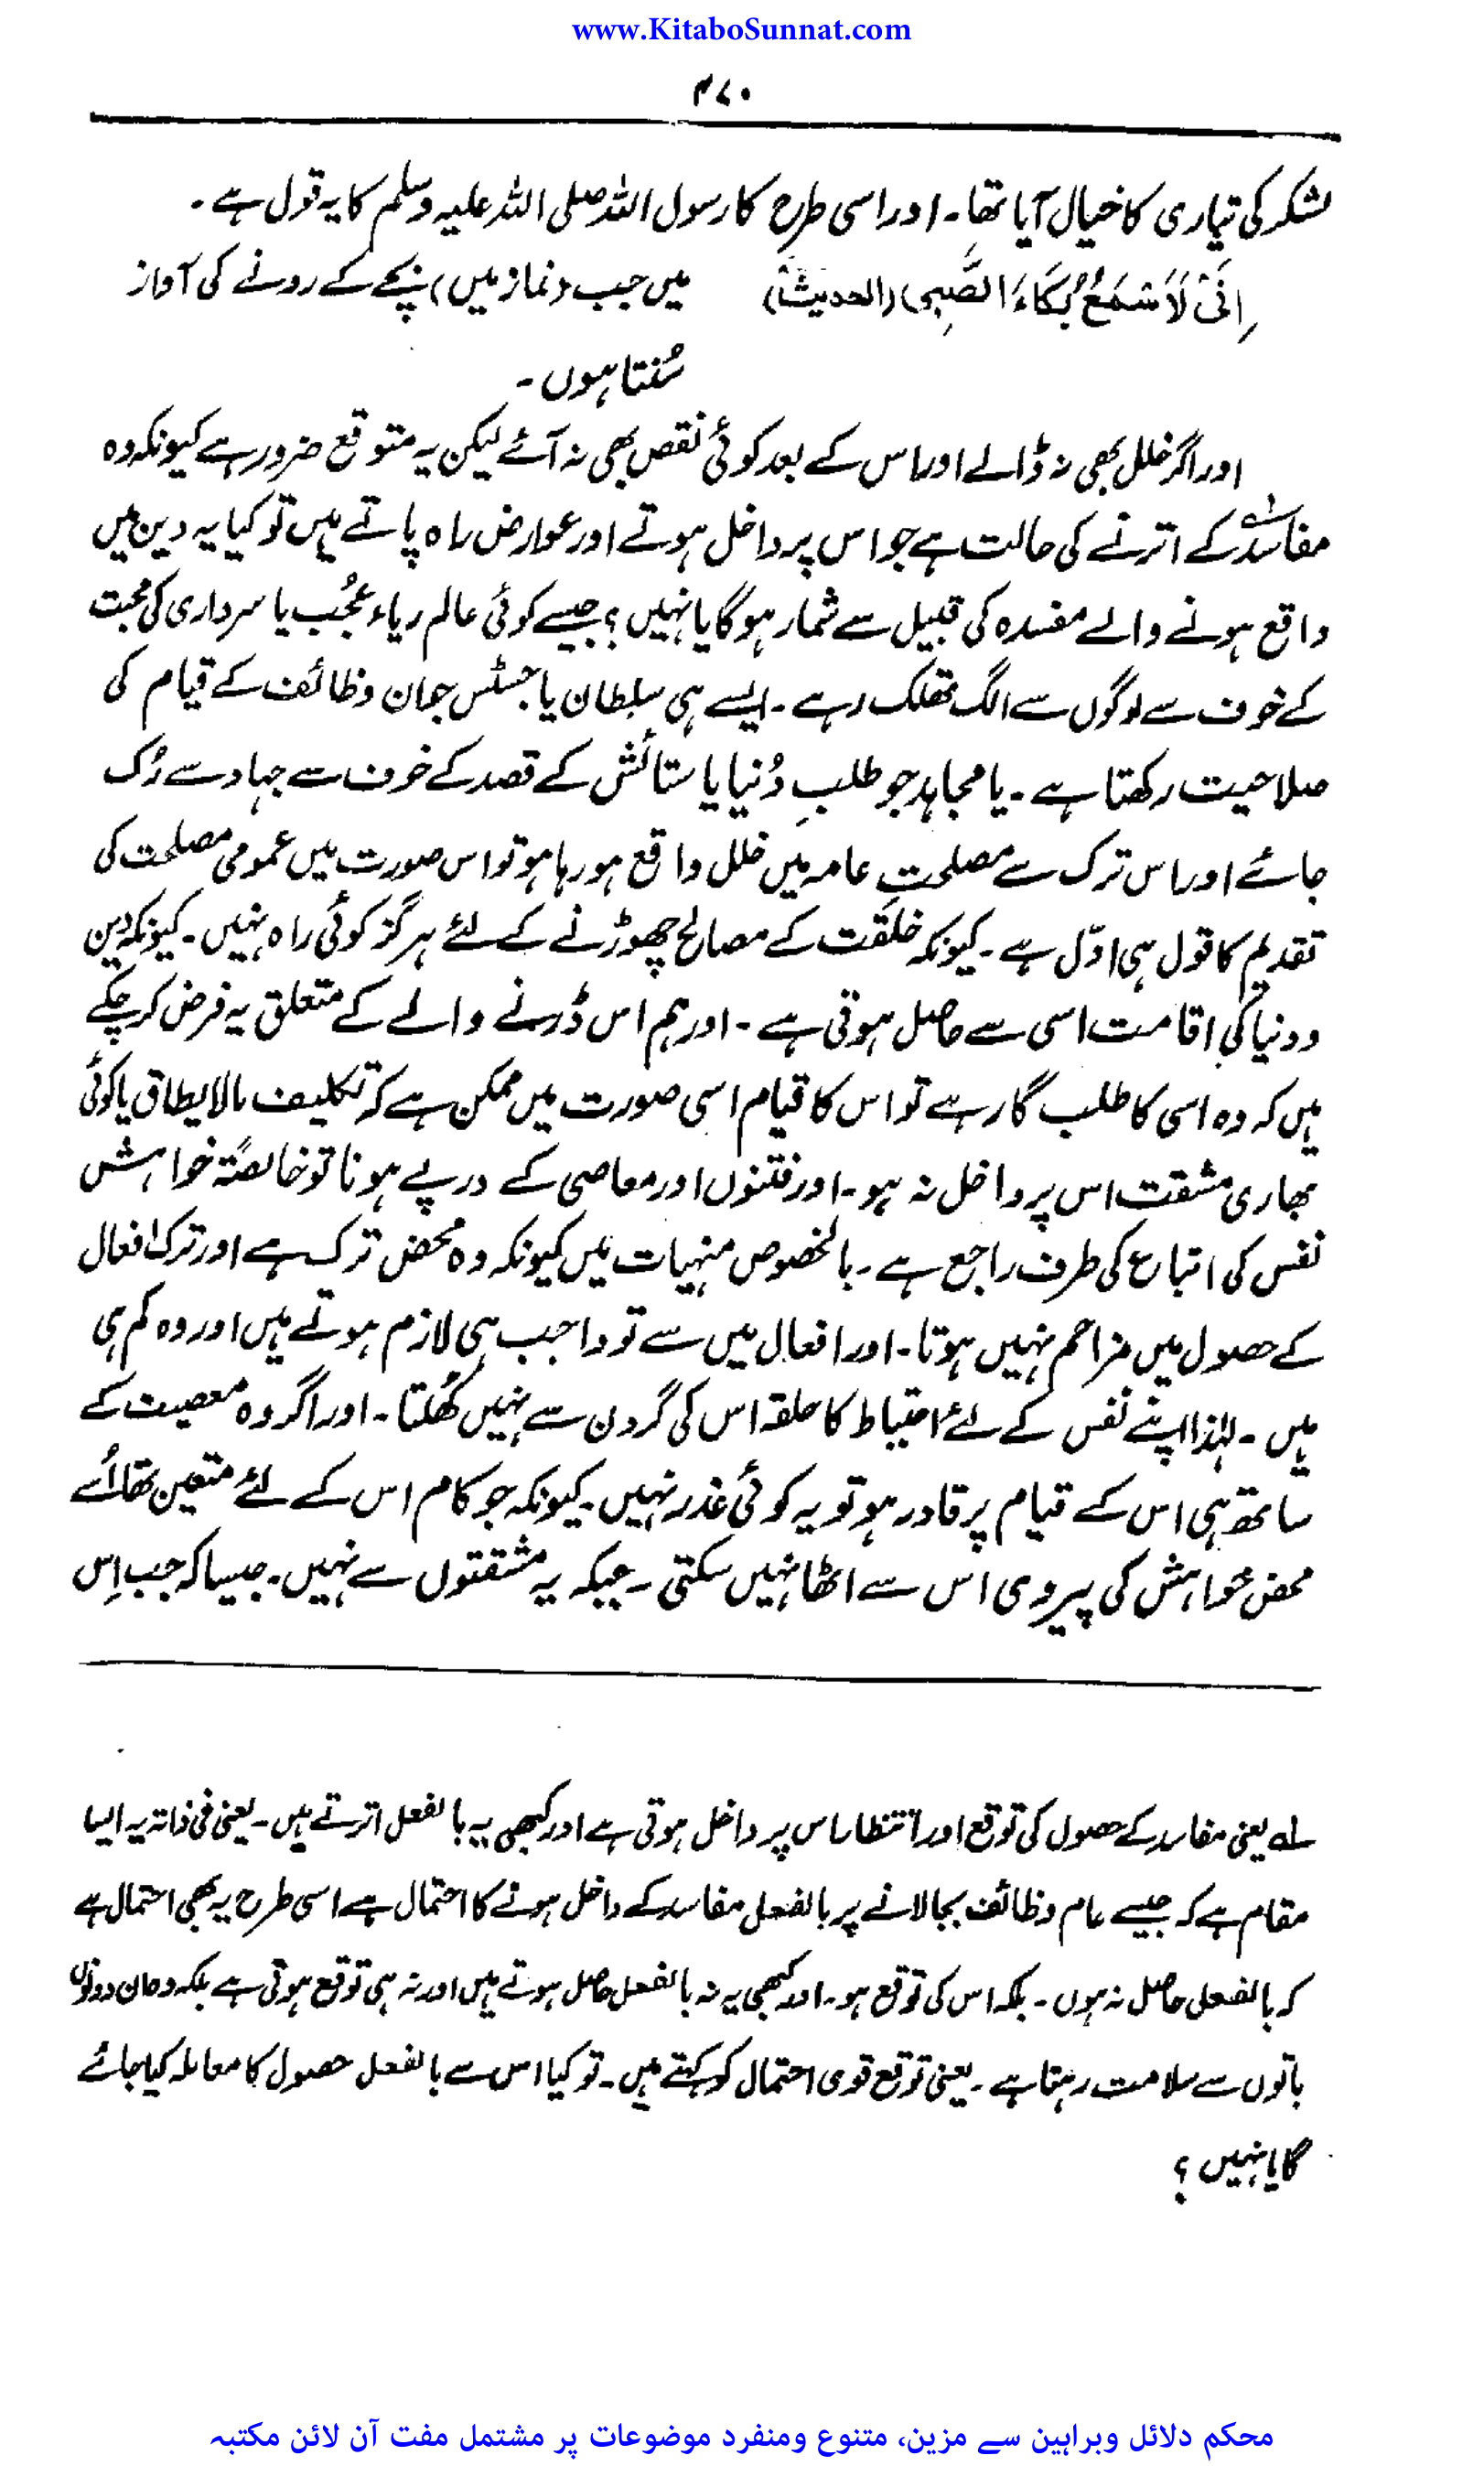 www.KitaboSunnat.com
۴۷۰
لشکر کی تیاری کا خیال آیا تھا۔ اور اسی طرح کا رسول اللہ صلی اللہ علیہ وسلم کا یہ قول ہے۔
اِنِّیْ لَاَسْمَعُ بُکَاءَ الصَّبِی (الحدیث) میں جب (نماز میں) بچے کے رونے کی آواز
سُنتا ہوں۔
اور اگر خلل بھی نہ ڈالے اور اس کے بعد کوئی نقص بھی نہ آئے لیکن یہ متوقع ضرور ہے کیونکہ وہ
مفاسد؁۱ کے اترنے کی حالت ہے جو اس پر داخل ہوتے اور عوارض راہ پاتے ہیں تو کیا یہ دین میں
واقع ہونے والے مفسدہ کی قبیل سے شمار ہوگا یا نہیں؟ جیسے کوئی عالم ریاء، عُجُب یا سرداری کی محبت
کے خوف سے لوگوں سے الگ تھلک رہے۔ ایسے ہی سلطان یا جسٹس جو ان وظائف کے قیام کی
صلاحیت رکھتا ہے۔ یا مجاہد جو طلبِ دُنیا یا ستائش کے قصد کے خوف سے جہاد سے رُک
جائے اور اس ترک سے مصلحتِ عامہ میں خلل واقع ہو رہا ہو تو اس صورت میں عمومی مصلحت کی
تقدیم کا قول ہی اوّل ہے۔ کیونکہ خلقت کے مصالح چھوڑنے کے لئے ہرگز کوئی راہ نہیں۔ کیونکہ دین
و دنیا کی اقامت اسی سے حاصل ہوتی ہے۔ اور ہم اس ڈرنے والے کے متعلق یہ فرض کر چکے
ہیں کہ وہ اسی کا طلب گار ہے تو اس کا قیام اسی صورت میں ممکن ہے کہ تکلیف مالا یطاق یا کوئی
بھاری مشقت اس پر داخل نہ ہو۔ اور فتنوں اور معاصی کے درپے ہونا تو خالصۃً خواہش
نفس کی اتباع کی طرف راجع ہے۔ بالخصوص منہیات میں کیونکہ وہ محض ترک ہے اور ترک افعال
کے حصول میں مزاحم نہیں ہوتا۔ اور افعال میں سے تو واجب ہی لازم ہوتے ہیں اور وہ کم ہی
ہیں۔ لہٰذا اپنے نفس کے لئے احتیاط کا حلقہ اس کی گردن سے نہیں کُھلتا۔ اور اگر وہ معصیت کے
ساتھ ہی اس کے قیام پر قادر ہو تو یہ کوئی عذر نہیں۔ کیونکہ جو کام اس کے لئے متعین تھا اُسے
محض خواہش کی پیروی اس سے اٹھا نہیں سکتی۔ جبکہ یہ مشقتوں سے نہیں۔ جیسا کہ جب اِس
؁۱ یعنی مفاسد کے حصول کی توقع اور انتظار اس پر داخل ہوتی ہے اور کبھی یہ بالفعل اترتے ہیں۔ یعنی فی ذاتہ یہ ایسا
مقام ہے کہ جیسے عام وظائف بجا لانے پر بالفعل مفاسد کے داخل ہونے کا احتمال ہے اسی طرح یہ بھی احتمال ہے
کہ بالفعل حاصل نہ ہوں۔ بلکہ اس کی توقع ہو۔ اور کبھی یہ نہ بالفعل حاصل ہوتے ہیں اور نہ ہی توقع ہوتی ہے بلکہ وہ ان دونوں
باتوں سے سلامت رہتا ہے۔ یعنی توقع قوی احتمال کو کہتے ہیں۔ تو کیا اس سے بالفعل حصول کا معاملہ کیا جائے
گا یا نہیں؟
محکم دلائل وبراہین سے مزین، متنوع ومنفرد موضوعات پر مشتمل مفت آن لائن مکتبہ